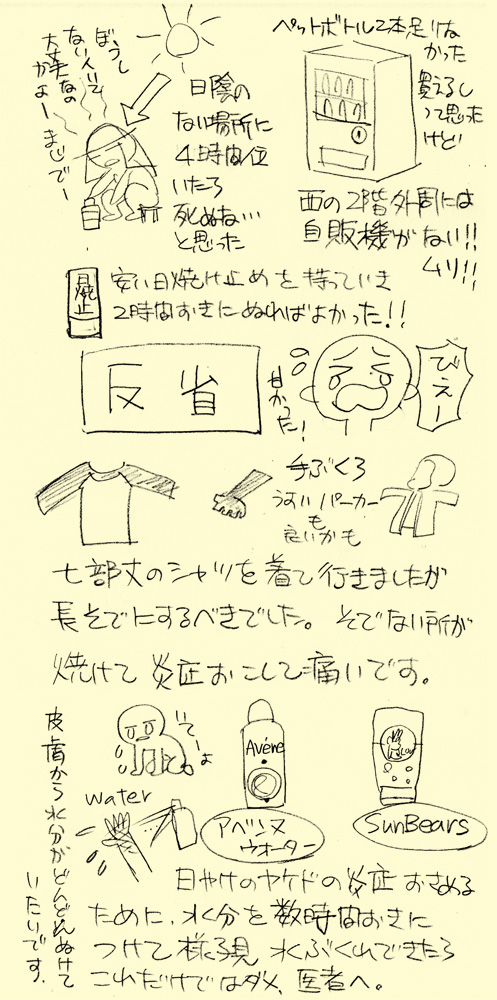 ぼうし
ない人いて
大丈夫なの
かよー
まじでー
日陰の
ない場所に
4時間位
いたら
死ぬな…
と思った
ペットボトル2本足りな
かった
買えるし
って思った
けど
西の2階外周には
自販機がない!!
ムリ!!
日焼止
安い日焼け止めを持っていき
2時間おきにぬればよかった!!
反省
甘かった!
びえー
手ぶくろ
うすいパーカー
も
良いかも
七部丈のシャツを着て行きましたが
長そでにするべきでした。そでない所が
焼けて炎症おこして痛いです。
皮膚から水分がどんどんぬけて
いたいです。
いてーよ
water
Avène
アベンヌ
ウオーター
SunBears
日やけのヤケドの炎症おさめる
ために、水分を数時間おきに
つけて様子見 水ぶくれできたら
これだけではダメ、医者へ。